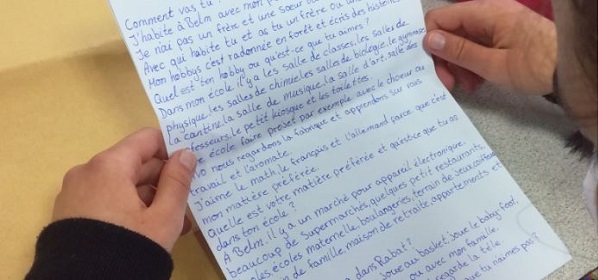 Comment vas tu ?
J'habite à Belm avec mon
Je n'ai pas un frère et une sœur
Avec qui habite tu et as tu un frère ou une
Mon hobbys c'est radonnée en forêt et écris des histoires
Quel est ton hobby ou qu'est-ce que tu aimes?
Dans mon école il y a les salle de classes, les salles de
physique, les salles de chimie, les salles de biologie, le gymnase
la cantine, la salle de musique, la salle d'art, salle des
professeurs, le petit kiosque et les toilettes.
école faire projet par exemple avec le chœur ou
nous regardons la fabrique et apprendons sur vous
travail et l'aromate.
J'aime le math, le français et l'allemand parce que c'est
mon matière préférée.
Quelle est votre matière préférée et qu'est-ce que tu as
dans ton école?
A Belm, il y a un marché pour appareil électronique
beaucoup de supermarchés, quelques petit restaurants,
écoles maternelle, boulangeries, terrain de jeux,
de famille, maison de retraite appartements et
dans Rabat?
Joue au basket. Joue le baby foot
avec mon famille.
regarde la télé
names pas?